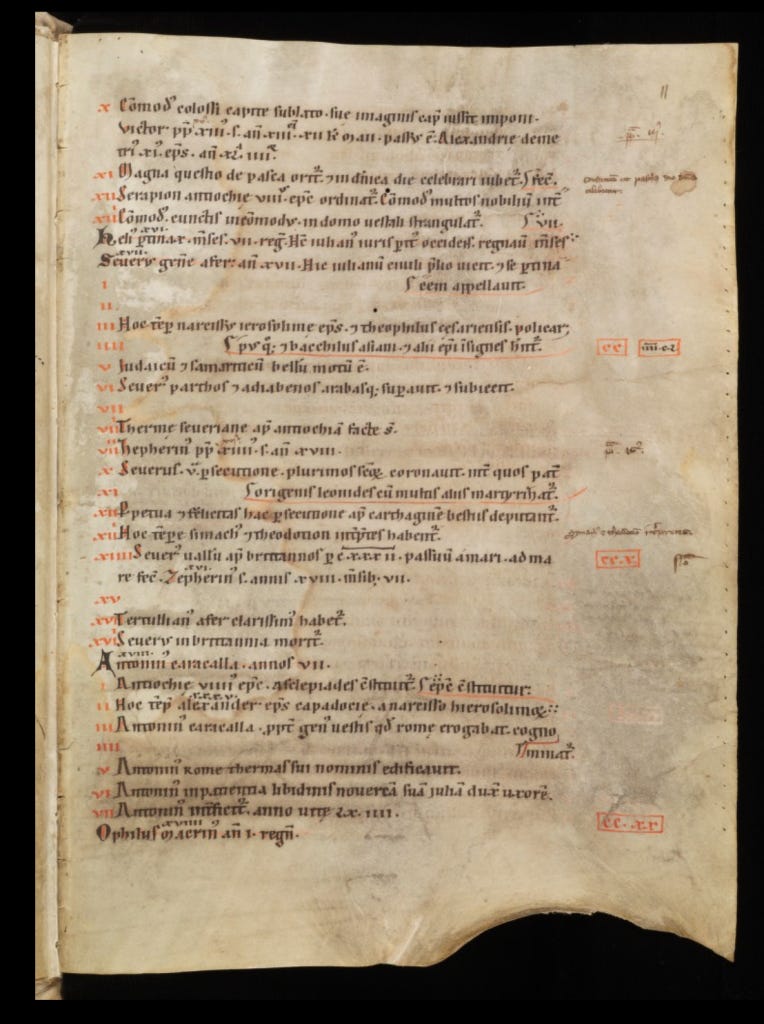 11
x Com̄od9 colossi capite sublato. sue imaginis cap̄ iussit imponi.
victor pp̄ xiii. s. an̄ xiii. xii k̄ maii. passȳ ē. Alexandrie deme
tri9 xi. ep̄s. an̄ xl. iiii.
xi Magna questio de pasca orit̄. ⁊ in dn̄ica die celebrari iubet̄.
xii Serapion antiochie viii. ep̄c ordinat̄. Com̄od9 multos nobiliū int̄
xiii Com̄od9 cunctis incōmodus. in domo uestali strangulat̄.
Heli9 ꝑtinax. m̄ses. vii. reḡ. Hē iulian9 iuris ꝑit9 occidess. regnauit m̄ses
xvii
Seuerus gn̄e afer. an̄ xvii. Hic iulianū emuli p̄lio uicit. ⁊ se ꝑtina
i cem appellauit.
ii
iii Hoc tēp̄ narcissus ierosolime ep̄s. ⁊ theophilus cesariensis. policar
iiii pus q̄; ⁊ bacchilus asiani. ⁊ alii ep̄i īsignes hn̄t̄.
cc
v Iudaicū ⁊ samariticū bellū motū ē.
vi Seuer9 parthos ⁊ adiabenos arabasq; suꝑauit. ⁊ subiecit.
vii
viii Therme seueriane ap̄ antiochiā facte s̄.
viiii Zepherin9 pp̄ xiiii. s. an̄ xviii.
x Seuerus. v. ꝑsecutione. plurimos sc̄oꝝ coronauit. int̄ quos pat̄
xi origenis leonides cū multis aliis martyrizat̄.
xii Perpetua ⁊ felicitas hac ꝑsecutione ap̄ carthaginē bestiis deputant̄.
xiii Hoc tēpe simach9 ⁊ theodotion int̄p̄tes habent̄.
xiiii Seuer9 uallū ap̄ brittannos ꝑ c.xxxii. passuū a mari. ad ma
cc.x
re fec̄. Zepherin9 s. annis xviii. m̄sib. vii.
xv
xvi Tertullian9 afer clarissim9 habet̄.
xvii Seuerus in brittannia morit̄.
xviii
Antonin9 caracalla. annos vii.
i Antiochie viiii ep̄c. asclepiades c̄stituit̄.
ii Hoc tēp̄ alexander ep̄s capadocie. a narcisso hierosolimoꝝ
iii Antonin9 caracalla. ꝓpt̄ gen9 uestis qd̄ rome erogabat. cogno
iiii minat̄.
v Antonin9 Rome thermas sui nominis edificauit.
vi Antonin9 inpatientia libidinis nouercā suā iuliā dux̄ uxorē.
vii Antonin9 int̄ficit̄. anno uite xl.iiii.
cc.xx
xviiii
Ophilus Macrin9 an̄ i. regn̄.